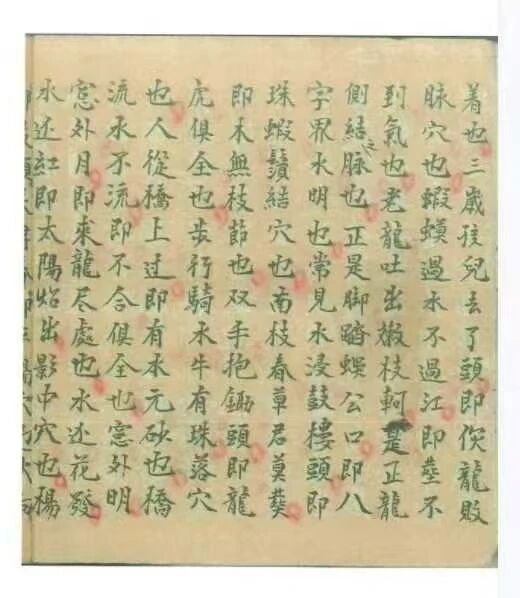 着也三歲孩兒去了頭即龍敗
脉穴也蝦蟆過水不過江即塟不
到氣也老龍吐出嫩枝軻是正龍
側結之脉也正是脚踏蜈公口即八
字界水明也常見水浸鼓樓頭即
珠蝦鬚結穴也南枝春草君莫葬
即木無枝節也双手抱鋤頭即龍
虎俱全也步行騎水牛有珠落穴
也人從橋上过即有水元砂也橋
流水不流即不合俱全也窓外明
窓外月即來龍尽處也水边花發
水边紅即太陽炤出影中穴也楊